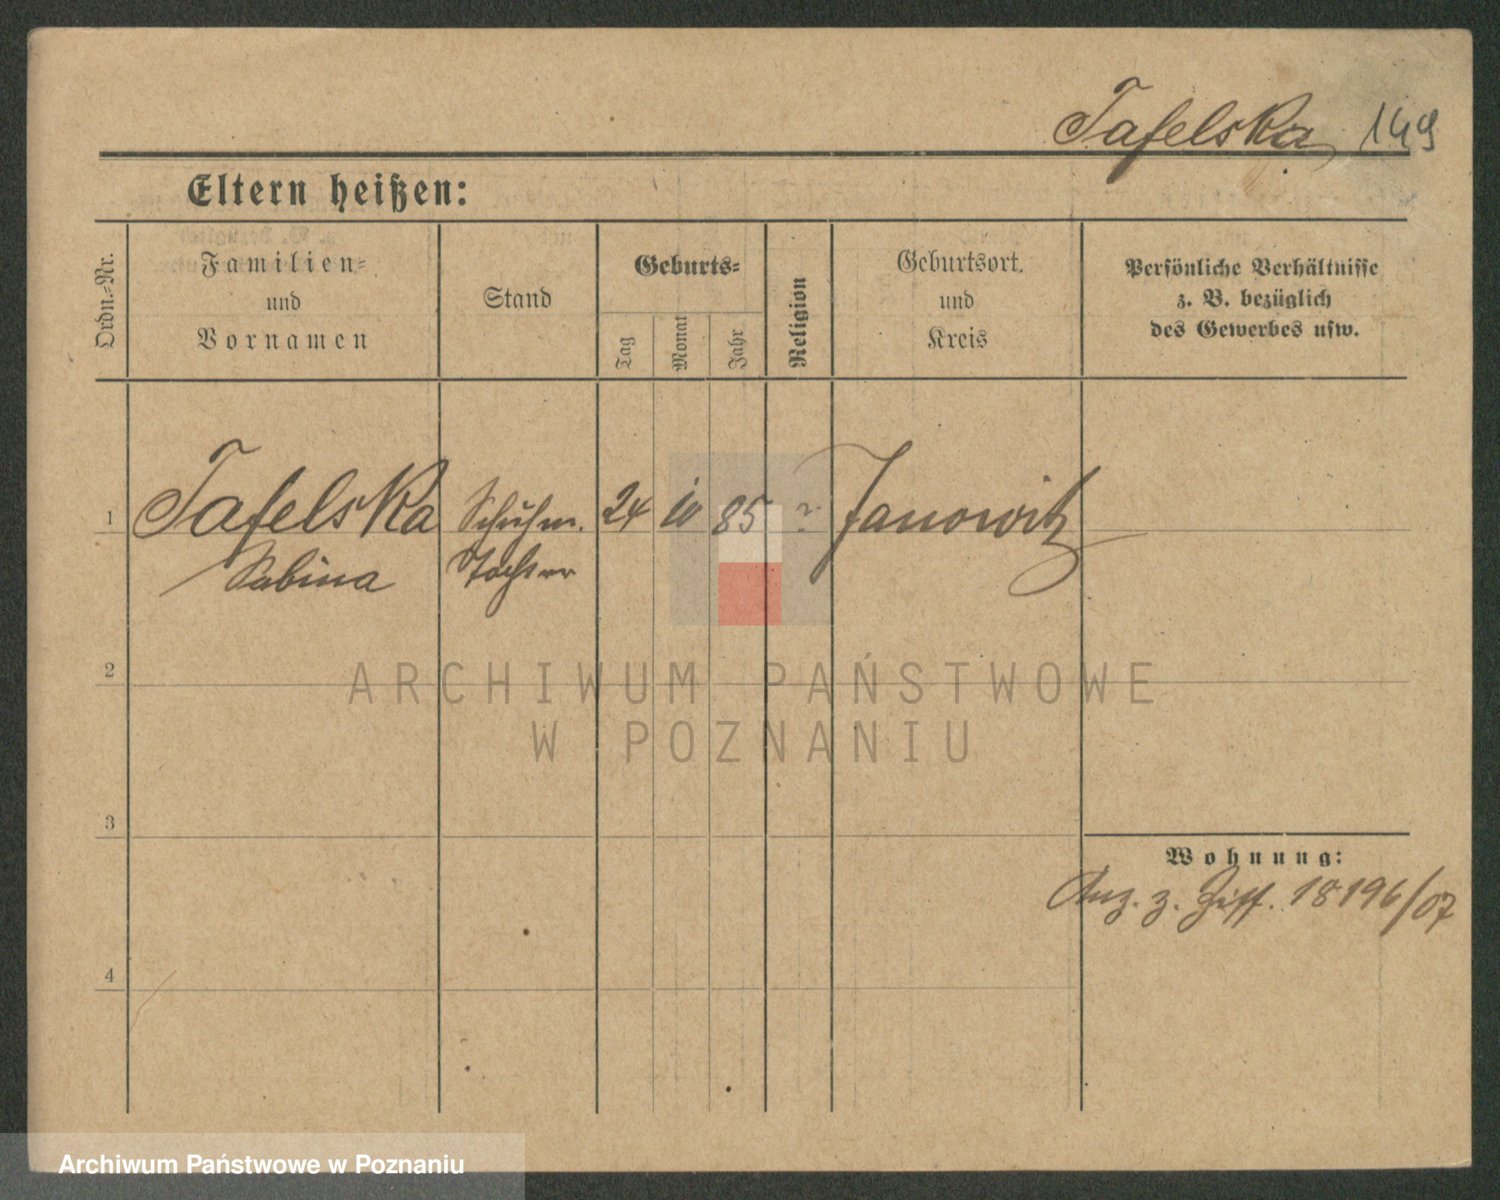 Tafelska 149
Eltern heißen:
Ordn.-Nr.
Familien-
und
Vornamen
Stand
Geburts-
Tag
Monat
Jahr
Religion
Geburtsort,
und
Kreis
Persönliche Verhältnisse
z. B. bezüglich
des Gewerbes usw.
1 Tafelska Schuhm. 24 10 85 ? Janowitz
Sabina Tochter
2
3
4
Wohnung:
Anz. z. Ziff. 18196/07
ARCHIWUM PAŃSTWOWE
W POZNANIU
Archiwum Państwowe w Poznaniu